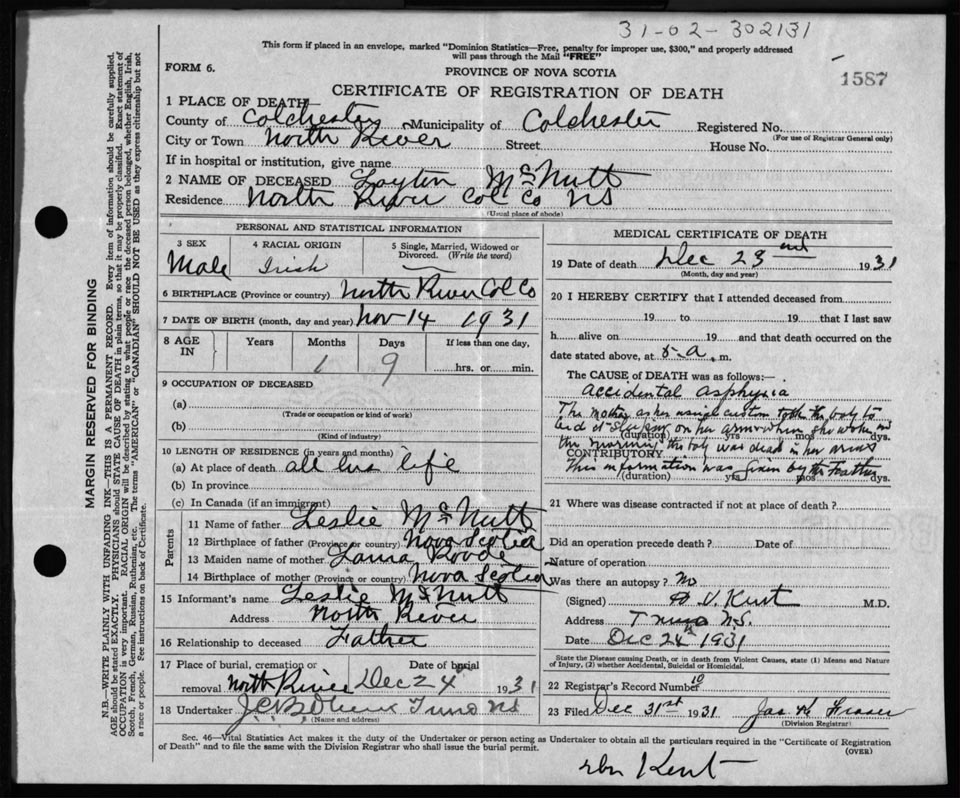 31-02-302131
This form if placed in an envelope, marked "Dominion Statistics—Free, penalty for improper use, $300," and properly addressed
will pass through the Mail "FREE"
FORM 6.
PROVINCE OF NOVA SCOTIA
1587
CERTIFICATE OF REGISTRATION OF DEATH
1 PLACE OF DEATH—
County of Colchester Municipality of Colchester Registered No.
(For use of Registrar General only)
City or Town North River Street House No.
If in hospital or institution, give name
2 NAME OF DECEASED Layton McNutt
Residence North River Col Co NS
(Usual place of abode)
PERSONAL AND STATISTICAL INFORMATION
3 SEX 4 RACIAL ORIGIN 5 Single, Married, Widowed or Divorced. (Write the word)
Male Irish —
6 BIRTHPLACE (Province or country) North River Col Co
7 DATE OF BIRTH (month, day and year) Nov 14 1931
8 AGE IN Years Months Days If less than one day,
1 9 hrs. or min.
9 OCCUPATION OF DECEASED
(a)
(Trade or occupation or kind of work)
(b)
(Kind of industry)
10 LENGTH OF RESIDENCE (in years and months)
(a) At place of death all his life
(b) In province
(c) In Canada (if an immigrant)
Parents
11 Name of father Leslie McNutt
12 Birthplace of father (Province or country) Nova Scotia
13 Maiden name of mother
14 Birthplace of mother (Province or country) Nova Scotia
15 Informant's name Leslie McNutt
Address North River
16 Relationship to deceased Father
17 Place of burial, cremation or removal North River Date of burial Dec 24 1931
18 Undertaker Truro NS
(Name and address)
MEDICAL CERTIFICATE OF DEATH
19 Date of death Dec 23 nd 1931
(Month, day and year)
20 I HEREBY CERTIFY that I attended deceased from
19 to 19 that I last saw
h alive on 19 and that death occurred on the
date stated above, at a. m.
The CAUSE of DEATH was as follows:—
accidental asphyxia
The mother as her usual custom took the baby to
bed it sleeping on her arm when she woke in
(duration) yrs mos dys.
the morning the baby was dead in her arms
CONTRIBUTORY
This information was given by the father
(duration) yrs mos dys.
21 Where was disease contracted if not at place of death?
Did an operation precede death? Date of
Nature of operation
Was there an autopsy? no
(Signed) Kent M.D.
Address Truro N.S.
Date Dec 24th 1931
State the Disease causing Death, or in death from Violent Causes, state (1) Means and Nature
of Injury, (2) whether Accidental, Suicidal or Homicidal.
22 Registrar's Record Number 10
23 Filed Dec 31st 1931 Jas K Fraser
(Division Registrar)
Sec. 46—Vital Statistics Act makes it the duty of the Undertaker or person acting as Undertaker to obtain all the particulars required in the "Certificate of Registration
of Death" and to file the same with the Division Registrar who shall issue the burial permit.
(OVER)
Kent
MARGIN RESERVED FOR BINDING
N.B.—WRITE PLAINLY WITH UNFADING INK—THIS IS A PERMANENT RECORD. Every item of information should be carefully supplied.
AGE should be stated EXACTLY. PHYSICIANS should STATE CAUSE OF DEATH in plain terms, so that it may be properly classified. Exact statement of
OCCUPATION is very important. RACIAL ORIGIN will be described by stating to what people or race the deceased person belonged, whether English, Irish,
Scotch, French, German, Russian, Ruthenian, etc. The terms "AMERICAN" or "CANADIAN" SHOULD NOT BE USED as they express citizenship but not
a race or people. See instructions on back of Certificate.